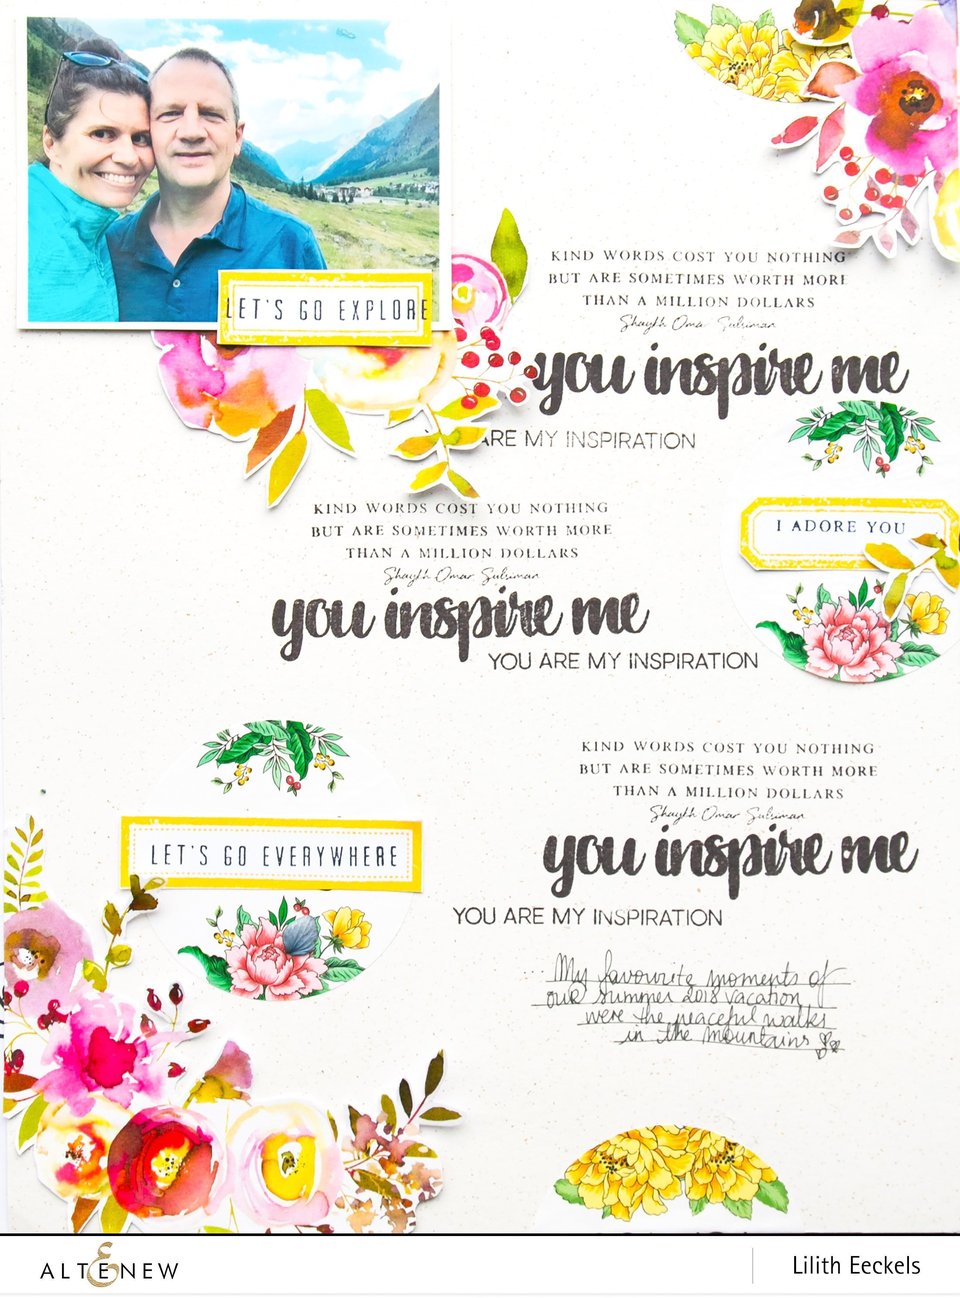 LET'S GO EXPLORE
KIND WORDS COST YOU NOTHING
BUT ARE SOMETIMES WORTH MORE
THAN A MILLION DOLLARS
Shaykh Omar Suleiman
you inspire me
ARE MY INSPIRATION
KIND WORDS COST YOU NOTHING
BUT ARE SOMETIMES WORTH MORE
THAN A MILLION DOLLARS
Shaykh Omar Suleiman
you inspire me
YOU ARE MY INSPIRATION
I ADORE YOU
LET'S GO EVERYWHERE
KIND WORDS COST YOU NOTHING
BUT ARE SOMETIMES WORTH MORE
THAN A MILLION DOLLARS
Shaykh Omar Suleiman
you inspire me
YOU ARE MY INSPIRATION
... My favourite moments of
our summer 2018 vacation
were the peaceful walks
in the mountains
ALTENEW
Lilith Eeckels